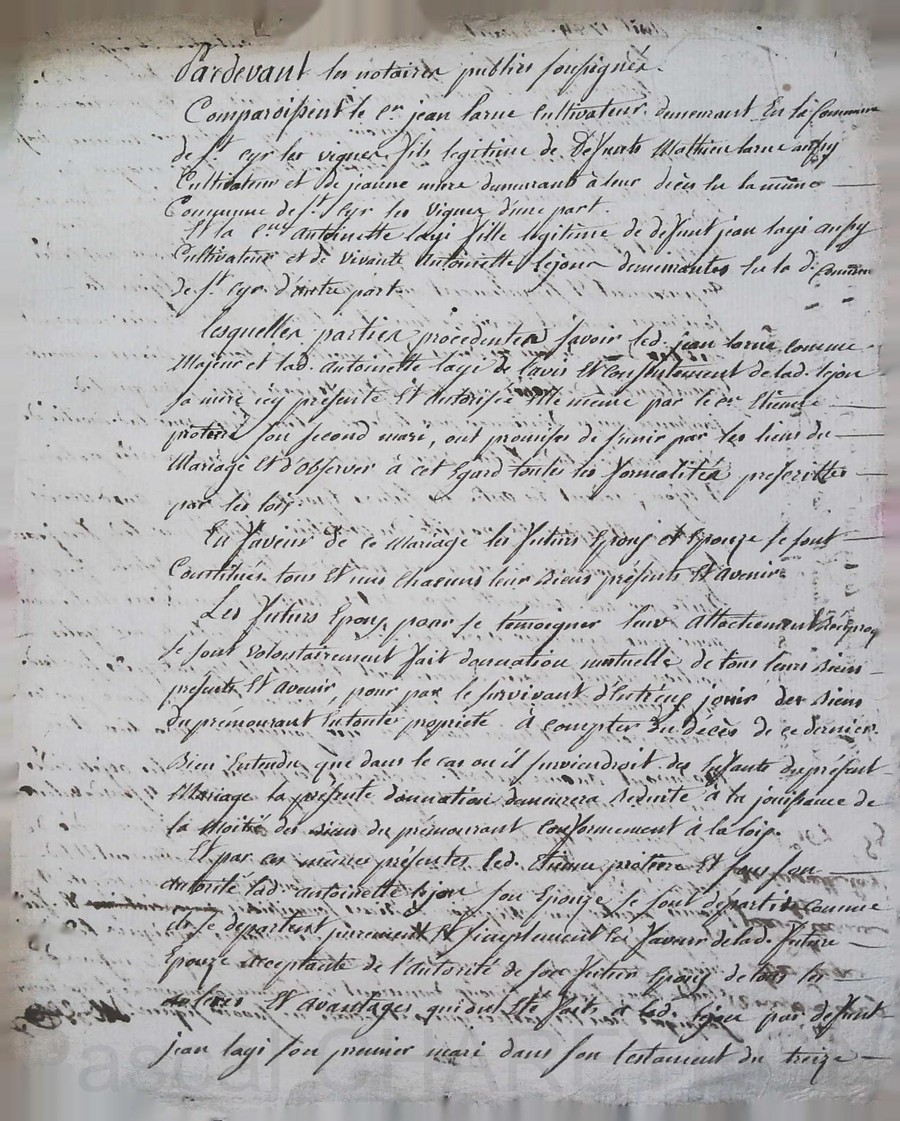 Pardevant les notaires publics soussignés.
Comparoissent le cn jean Larue Cultivateur demeurant En la Commune
de St Cyr les vignes fils legitime de Defunts Mathieu larue aussy
Cultivateur et de jeanne mure demeurants à leur decès En la même
Commune de St Cyr les Vignes d'une part.
Et la cne antoinette lagi fille legitime de defunt jean lagi aussy
Cultivateur et de vivante Antoinette lejon demeurantes En la de Commune
de St Cyr d'autre part.
lesquelles parties procedentes savoir led. jean larue comme
Majeur et lad. antoinette lagi de l'avis Et consentement de lad. lejon
sa mere icy presente Et autorisée Elle même par le cn Etienne
protiere son second mari, ont promises de s'unir par les liens du
Mariage Et d'observer à cet Egard toutes les formalités prescrittes
par les loix.
En faveur de ce Mariage les futurs Epoux et Epouze se sont
Constitués tous et uns chacuns leur biens présents Et avenir.
Les futurs Epoux pour se témoigner leur Attachement
se sont volontairement fait donnation mutuelle de tous leurs biens
presents Et avenir, pour par le survivant d'Entr'eux jouir des biens
du prémourant En toute propriété à compter du décès de ce dernier
bien Entendu que dans le cas ou il surviendroit des Enfants du présent
Mariage la présente donnation demeurera reduite à la jouissance de
la Moitié des biens du prémourant conformement à la loix.
Et par ces mêmes présentes led. Etienne protiere Et sous son
autorité lad. antoinette lejon son Epouze se sont départis comme
ils se départent purement Et simplement En faveur de lad. future
Epouze acceptante de l'autorité de son futur Epoux de tous les
Et avantages qui ont Eté faits à lad. lejon par defunt
jean lagi son premier mari dans son testament du treize